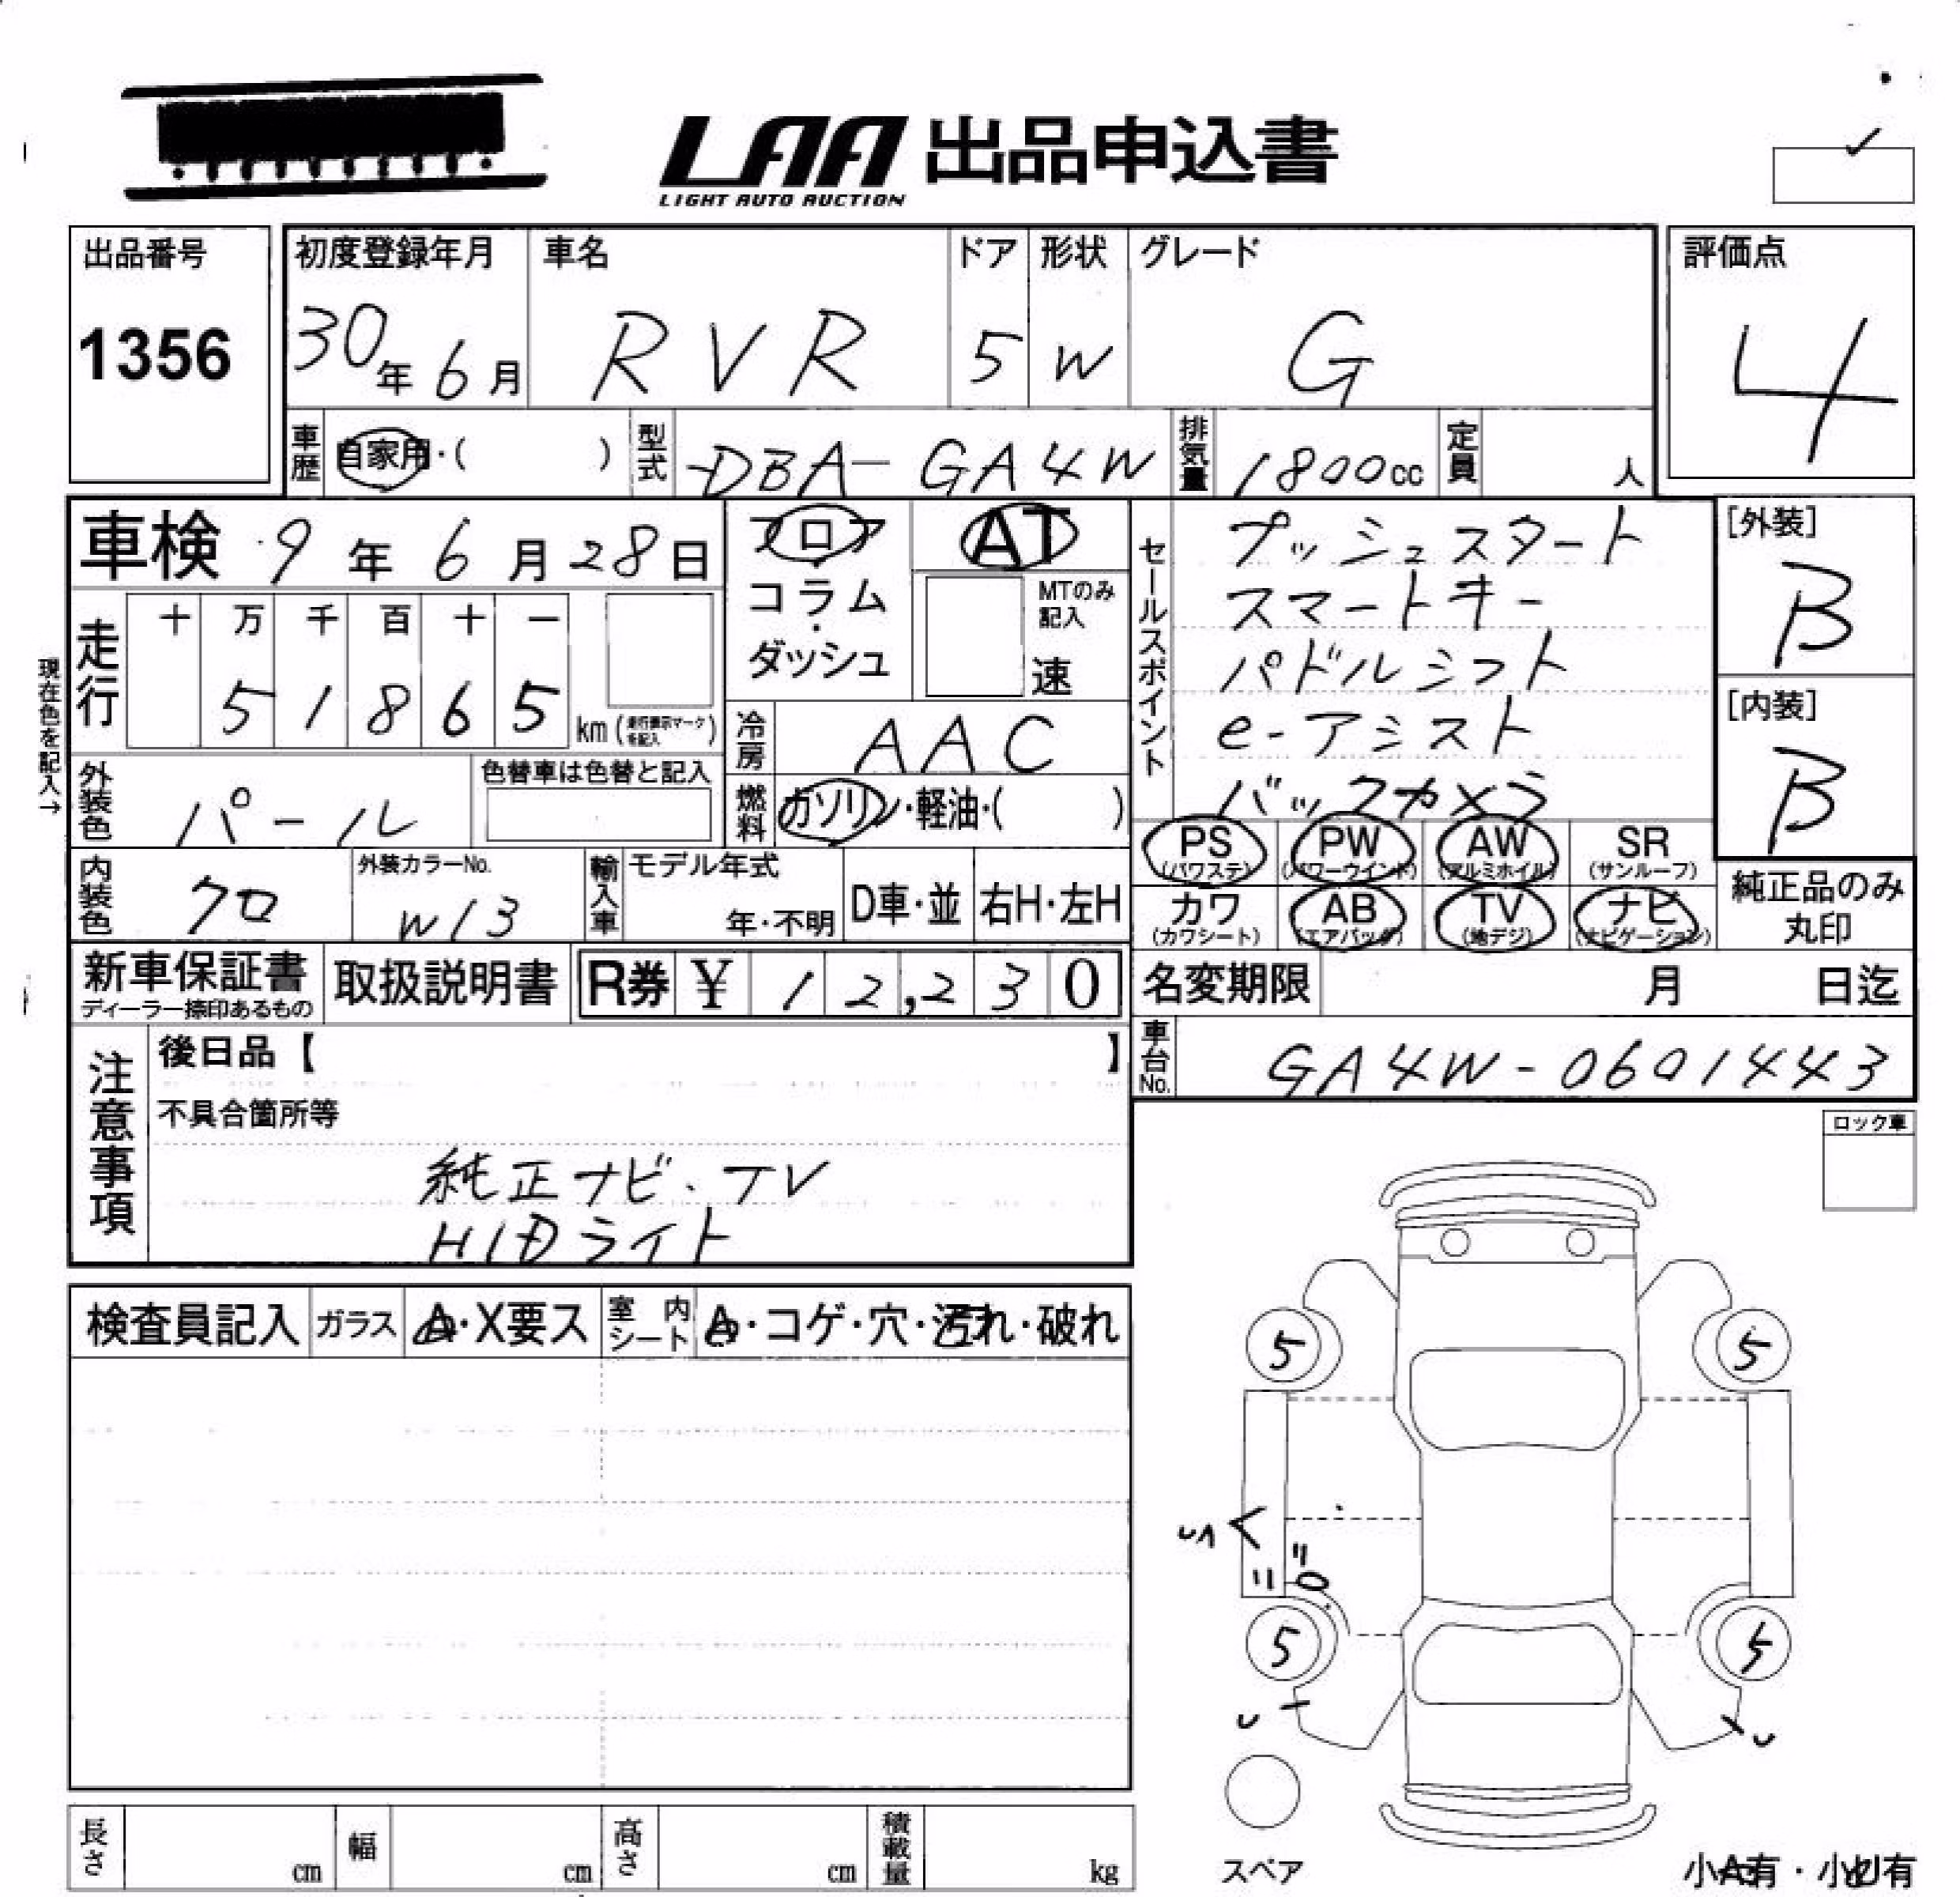 LAA 出品申込書
LIGHT AUTO AUCTION
出品番号
1356
初度登録年月
30年6月
車名
RVR
ドア
5
形状
W
グレード
G
評価点
4
車歴
自家用・( )
型式
DBA-GA4W
排気量
1800cc
定員
人
車検 9年6月28日
フロア
・
コラム
・
ダッシュ
AT
MTのみ
記入
速
走行
十 万 千 百 十 一
5 1 8 6 5
km(走行表示マークを記入)
現在色を記入→
冷房
AAC
外装色
パール
色替車は色替と記入
燃料
ガソリン・軽油・( )
内装色
クロ
外装カラーNo.
W13
輸入車
モデル年式
年・不明
D車・並
右H・左H
セールスポイント
プッシュスタート
スマートキー
パドルシフト
e-アシスト
バックカメラ
[外装]
B
[内装]
B
PS
(パワステ)
PW
(パワーウインド)
AW
(アルミホイル)
SR
(サンルーフ)
カワ
(カワシート)
AB
(エアバッグ)
TV
(地デジ)
ナビ
(ナビゲーション)
純正品のみ
丸印
新車保証書
ディーラー捺印あるもの
取扱説明書
R券 ¥ 12,230
名変期限
月 日迄
車台No.
GA4W-0601443
注意事項
後日品【 】
不具合箇所等
純正ナビ.TV
HIDライト
ロック車
検査員記入
ガラス
A・X要ス
室内シート
A・コゲ・穴・汚れ・破れ
5
5
5
5
スペア
長さ
cm
幅
cm
高さ
cm
積載量
kg
小A有・小U有